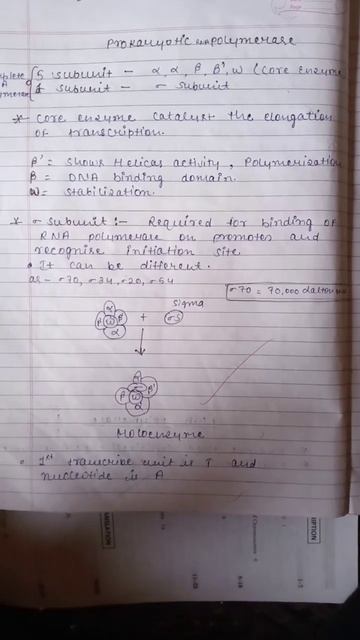 Prokaryotic RNA polymerase
5 subunit - α, α, β, β', ω (Core Enzyme
1 subunit - σ subunit
* Core enzyme catalyst the elongation
of transcription.
β' = Shows Helicas activity, Polymerization
β = DNA binding domain.
ω = Stabilization.
* σ subunit :- Required for binding of
RNA polymerase on promoter and
recognise initiation site
• It can be different.
as - σ70, σ34, σ20, σ54
σ70 = 70,000 dalton
sigma
α
β ω β'
α
+
σS
α
β ω β'
α
Holoenzyme
• 1st transcribe unit is T and
nucleotide is A